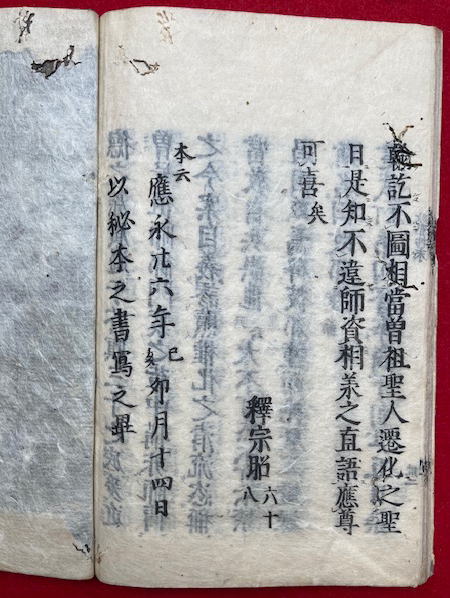 翰訖不圖相當曽祖聖人遷化之聖
日是知不違師資相承之直語應尊
可喜矣
釋宗昭六十八
本云
應永廿六年己亥卯月十四日
以秘本之書寫之畢